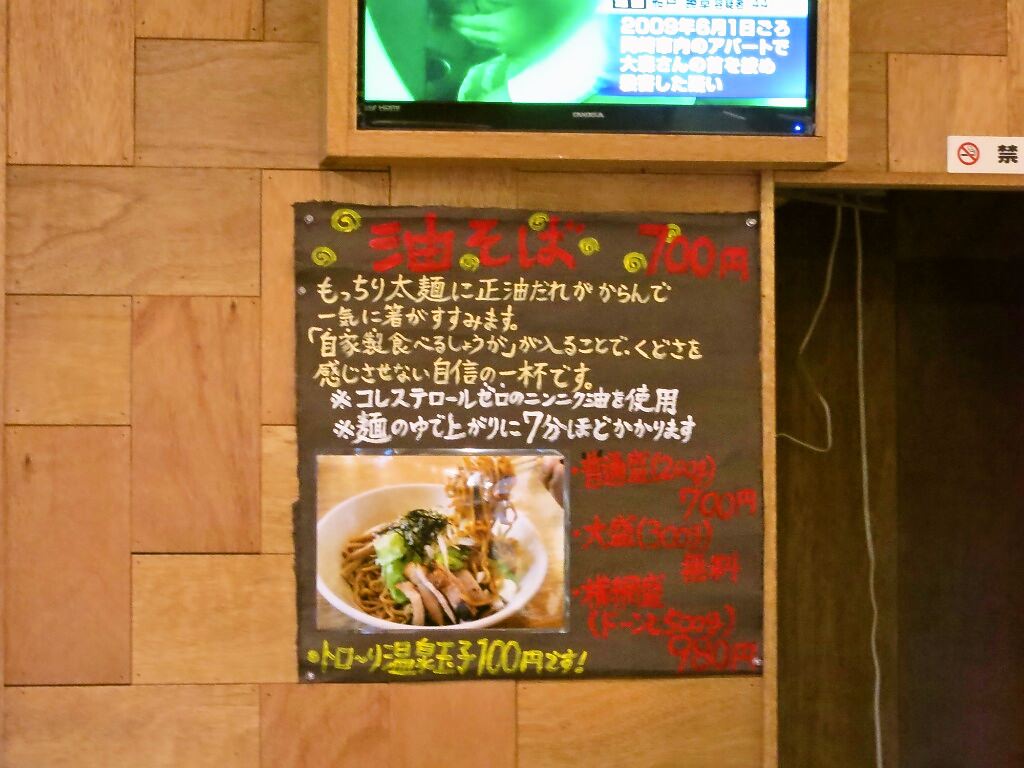 2009年6月1日ごろ
岡崎市内のアパートで
さんの首を絞め
殺害した疑い
HDMI
禁
油そば 700円
もっちり太麺に正油だれが からんで
一気に箸がすすみます。
「自家製食べるしょうが」が入ることで、くどさを
感じさせない自信の一杯です。
※コレステロールゼロのニンニク油を使用
※麺のゆで上がりに7分ほどかかります
・普通盛(200g)
700円
・大盛(300g)
無料
・横綱盛
(ドーンと500g)
980円
・トロ〜リ温泉玉子100円です!